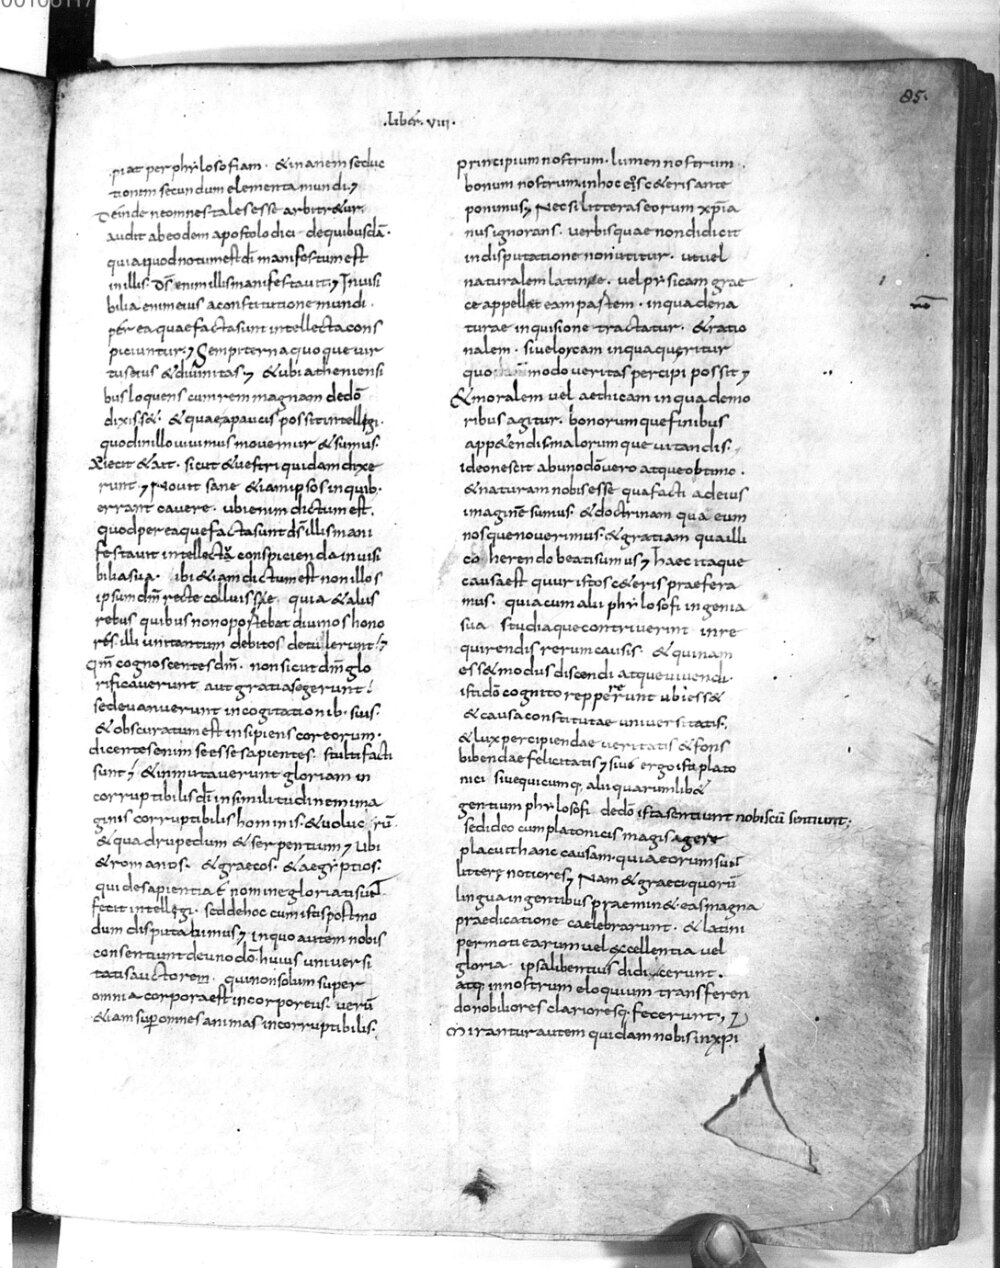 00106117
85.
.Liber. VIII.
piat per phylosofiam. & inanem seduc
tionem secundum elementa mundi;
Deinde ne omnes tales esse arbitr&ur.
audit ab eodem apostolo dici de quibusdā.
quia quod notum est dī manifestum est
in illis. Ds̄ enim illis manifestavit; Invisi
bilia enim eius a constitutione mundi.
per ea quae facta sunt intellecta cons
piciuntur; Sempiterna quoque vir
tus eius & divinitas; & ubi atheniensi
bus loquens cum rem magnam de dō
dixiss&. & quae a paucis possit intellegi.
quod in illo vivimus movemur & sumus.
Adiecit & ait. sicut & vestri quidam dixe
runt; Novit sane &iam ipsos in quib.
errant cavere. ubi enim dictum est.
quod per ea que facta sunt ds̄ illis mani
festavit intellecta conspicienda invisi
bilia sua. ibi &iam dictum est non illos
ipsum dm̄ recte colluisse. quia & aliis
rebus quibus non oportebat divinos hono
res illi uni tantum debitos detullerunt;
qm̄ cognoscentes dm̄. non sicut dm̄ glo
rificaverunt aut gratias egerunt;
sed evanuerunt in cogitationib. suis.
& obscuratum est insipiens cor eorum.
dicentes enim se esse sapientes. stulti facti
sunt; & inmutaverunt gloriam in
corruptibilis dī in similitudinem ima
ginis corruptibilis hominis. & volucrū.
& quadrupedum & serpentium; Ubi
& romanos. & graecos. & aegyptios.
qui de sapientiae nomine gloriati sunt
fecit intellegi. sed de hoc cum istis postmo
dum disputabimus; in quo autem nobis
consentiunt de uno dō huius universi
tatis auctorem. qui non solum super
omnia corpora est incorporeus. verū
&iam super omnes animas incorruptibilis.
principium nostrum. lumen nostrum.
bonum nostrum. in hoc eos c&eris ante
ponimus; Nec si litteras eorum xp̄ia
nus ignorans. verbis quae non didicit
in disputatione non utitur. ut vel
naturalem latine. vel physicam grae
ce appell& eam partem. in qua de na
turae inquisione tractatur. & ratio
nalem. sive loycam in qua queritur
quonam modo veritas percipi possit;
& moralem vel aethicam in qua de mo
ribus agitur. bonorumque finibus
app&endis. malorumque vitandis.
ideo nescit ab uno dō vero atque obtimo.
& naturam nobis esse qua facti ad eius
imaginem sumus. & doctrinam qua eum
nosque noverimus. & gratiam qua illi
coherendo beati sumus; haec itaque
causa est quur istos c&eris praefera
mus. quia cum alii phylosofi ingenia
sua studiaque contriverint in re
quirendis rerum causis. & quinam
ess& modus discendi atque vivendi.
isti dō cognito reppererunt ubi ess&
& causa constitutae universitatis.
& lux percipiendae veritatis & fons
bibendae felicitatis; sive ergo isti plato
nici sive quicumq; alii quarumlib&
gentium phylosofi de dō ista sentiunt nobiscū sentiunt;
sed ideo cum platonicis magis agere
placuit hanc causam. quia eorum sunt
littere notiores; Nam & graeci quorū
lingua in gentibus praemin& eas magna
praedicatione caelebrarunt. & latini
permoti earum vel excellentia vel
gloria ipsa libentius didicerunt.
atq; in nostrum eloquium transferen
do nobiliores clarioresq; fecerunt;
Mirantur autem quidam nobis in xp̄i